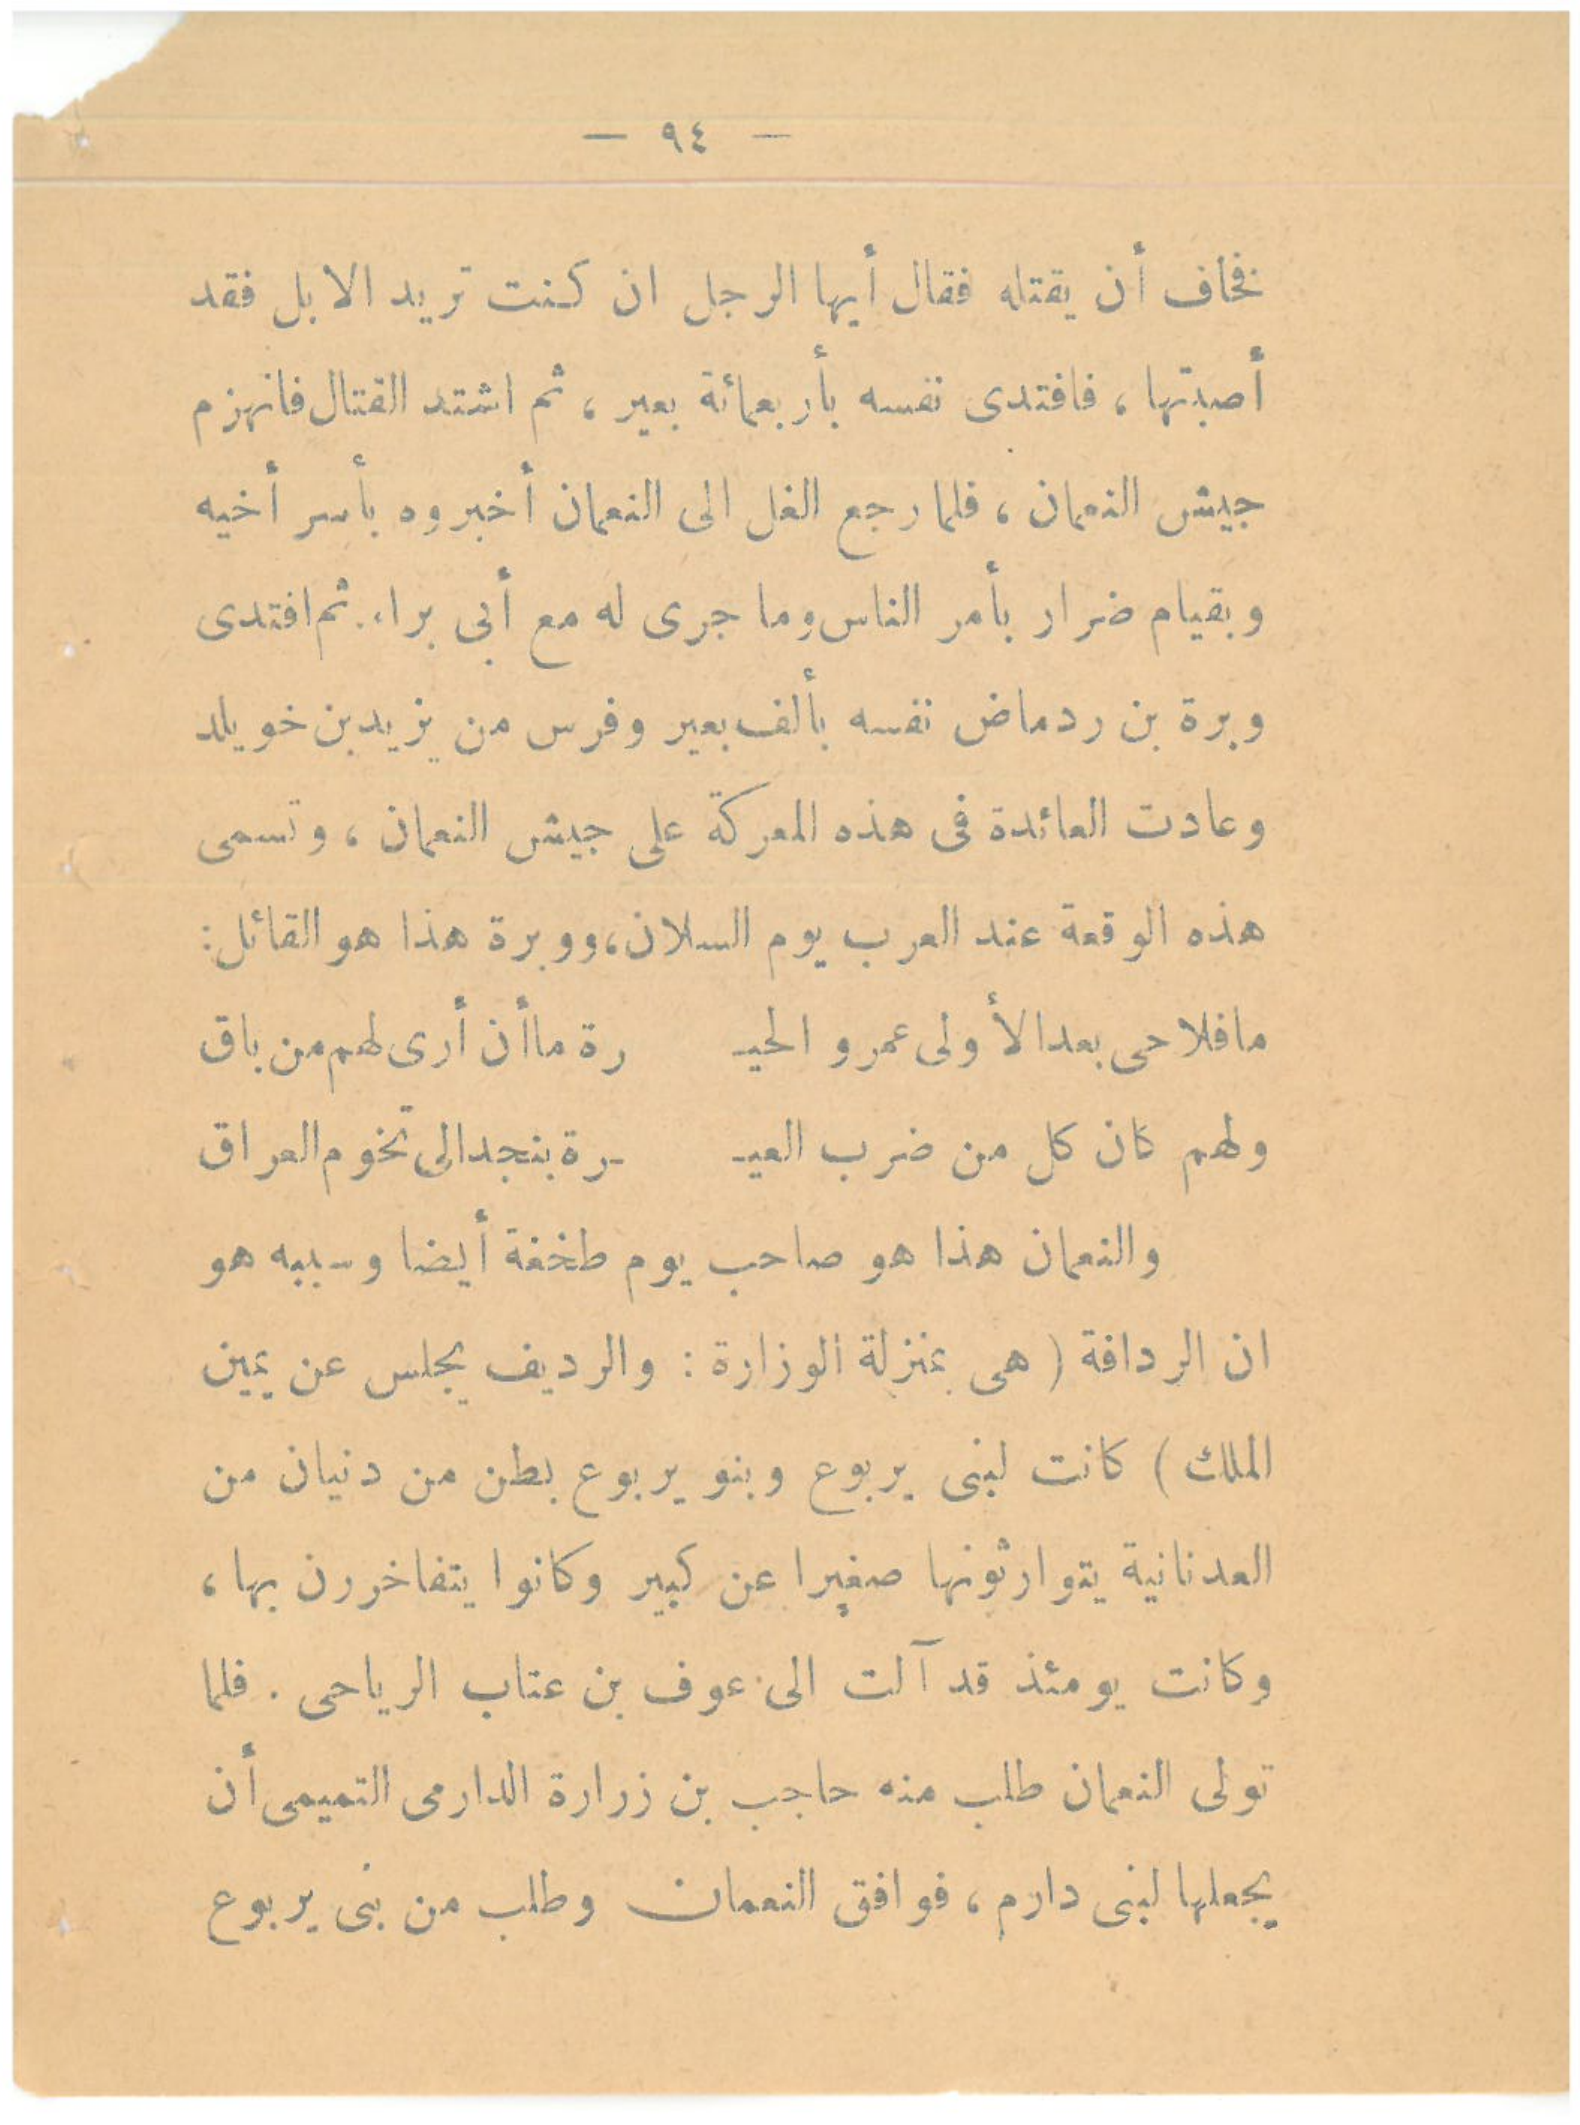 — ٩٤ —
فخاف أن يقتله فقال أيها الرجل ان كنت تريد الابل فقد
أصبتها ، فافتدى نفسه بأربعمائة بعير ، ثم اشتد القتال فانهزم
جيش النعمان ، فلما رجع الفل الى النعمان أخبروه بأسر أخيه
وبقيام ضرار بأمر الناس وما جرى له مع أبى براء. ثم افتدى
وبرة بن ردماض نفسه بألف بعير وفرس من يزيد بن خويلد
وعادت العائدة فى هذه المعركة على جيش النعمان ، وتسمى
هذه الوقعة عند العرب يوم السلان، ووبرة هذا هو القائل:
مافلاحى بعد الأولى عمرو الحيـ رة ماأن أرى لهم من باق
ولهم كان كل من ضرب العيـ ـرة بنجد الى تخوم العراق
والنعمان هذا هو صاحب يوم طخفة أيضا وسببه هو
ان الردافة ( هى بمنزلة الوزارة : والرديف يجلس عن يمين
الملك ) كانت لبنى يربوع وبنو يربوع بطن من دنيان من
العدنانية يتوارثونها صغيرا عن كبير وكانوا يتفاخررن بها ،
وكانت يومئذ قد آلت الى عوف بن عتاب الرياحى . فلما
تولى النعمان طلب منه حاجب بن زرارة الدارمى التميمى أن
يجعلها لبنى دارم ، فوافق النعمان وطلب من بنى يربوع